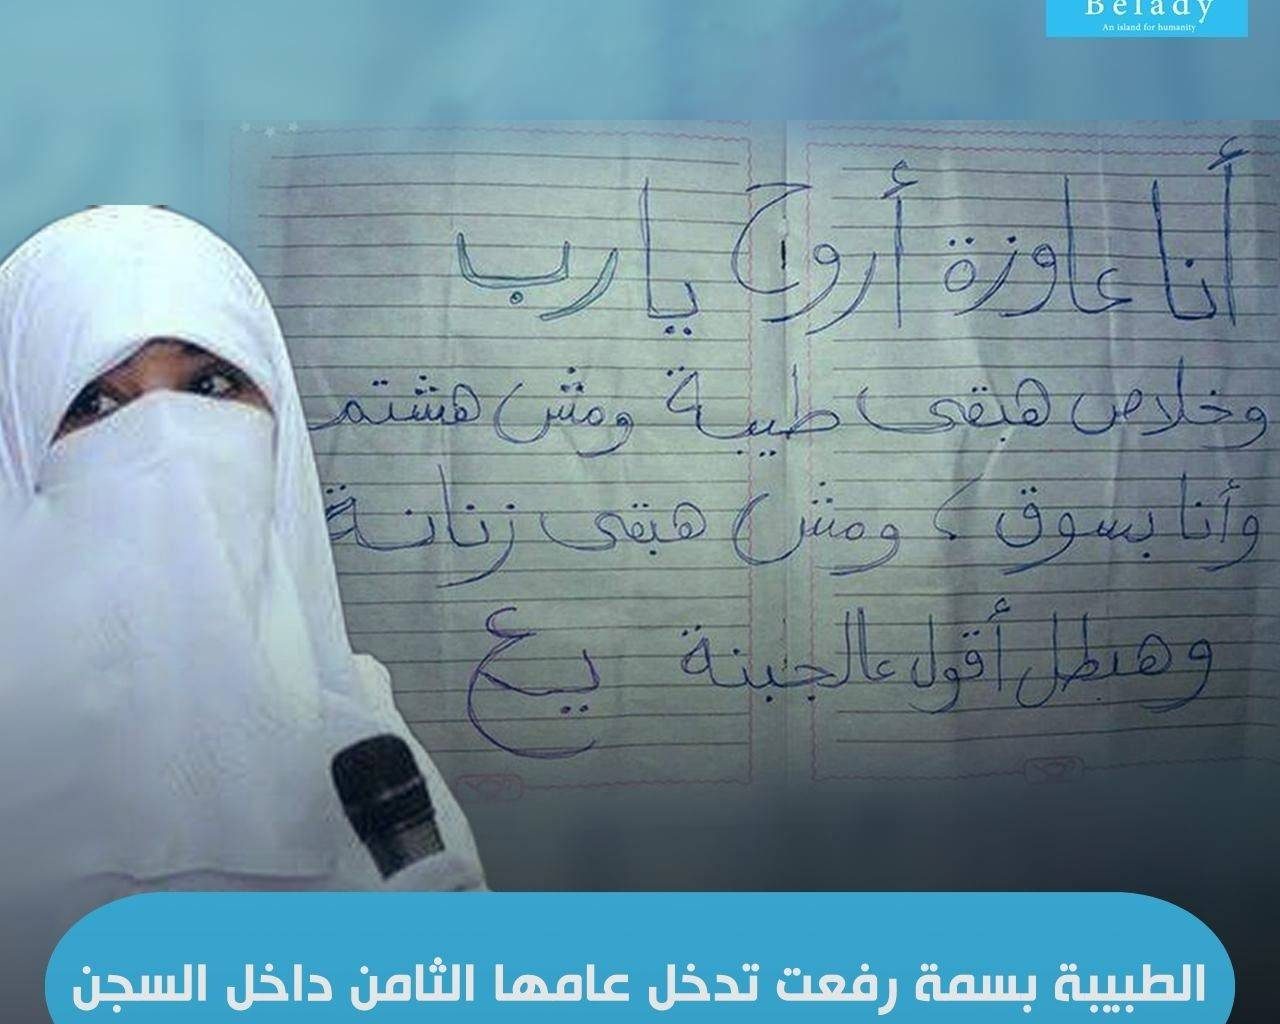 Belady
An island for humanity
أنا عاوزة أروح يارب
وخلاص هبقى طيبة ومش هشتم
وأنا بسوق، ومش هبقى زنانة
وهبطل أقول عالجبنة يع
الطبيبة بسمة رفعت تدخل عامها الثامن داخل السجن